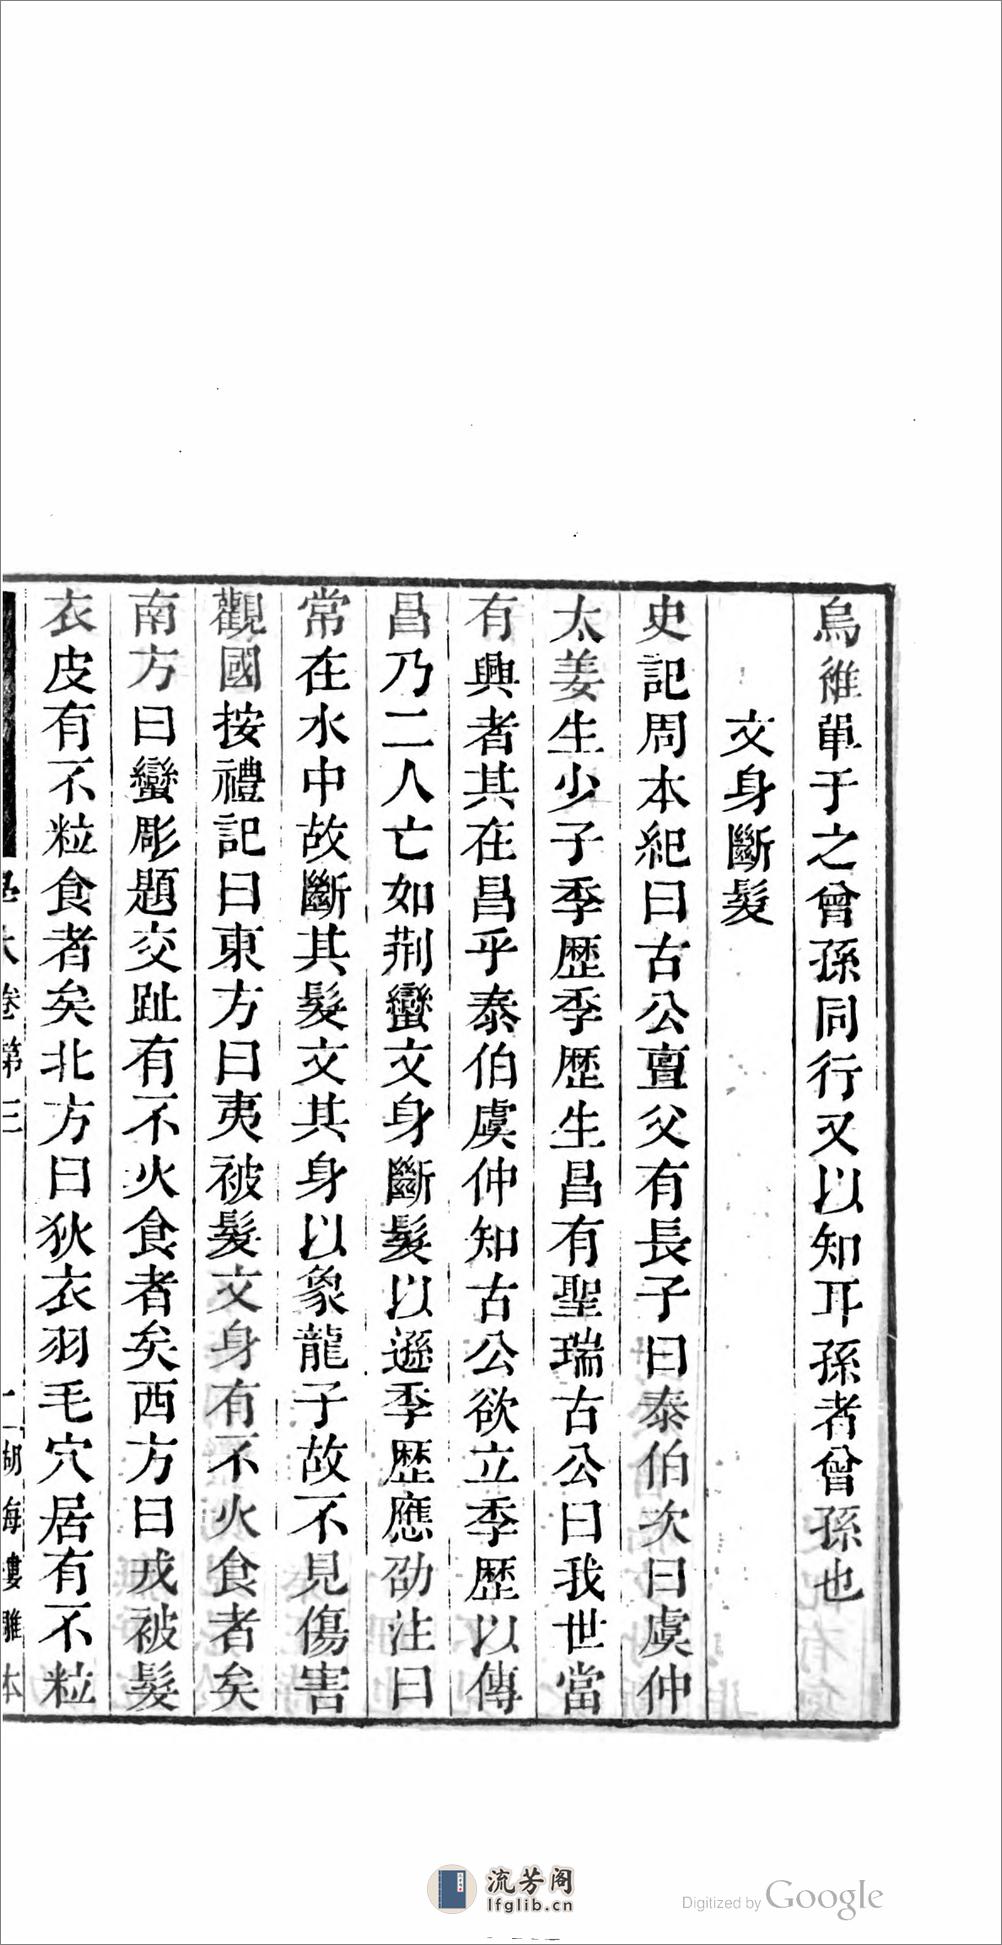 烏維單于之曾孫同行又以知耳孫者曾孫也
文身斷髮
史記周本紀曰古公亶父有長子曰泰伯次曰虞仲
太姜生少子季歷季歷生昌有聖瑞古公曰我世當
有興者其在昌乎泰伯虞仲知古公欲立季歷以傳
昌乃二人亡如荆蠻文身斷髮以遜季歷應劭注曰
常在水中故斷其髮文其身以象龍子故不見傷害
觀國按禮記曰東方曰夷被髮文身有不火食者矣
南方曰蠻彫題交趾有不火食者矣西方曰戎被髮
衣皮有不粒食者矣北方曰狄衣羽毛穴居有不粒
卷第三
湖海樓雕本
流芳阁
lfglib.cn
Digitized by Google